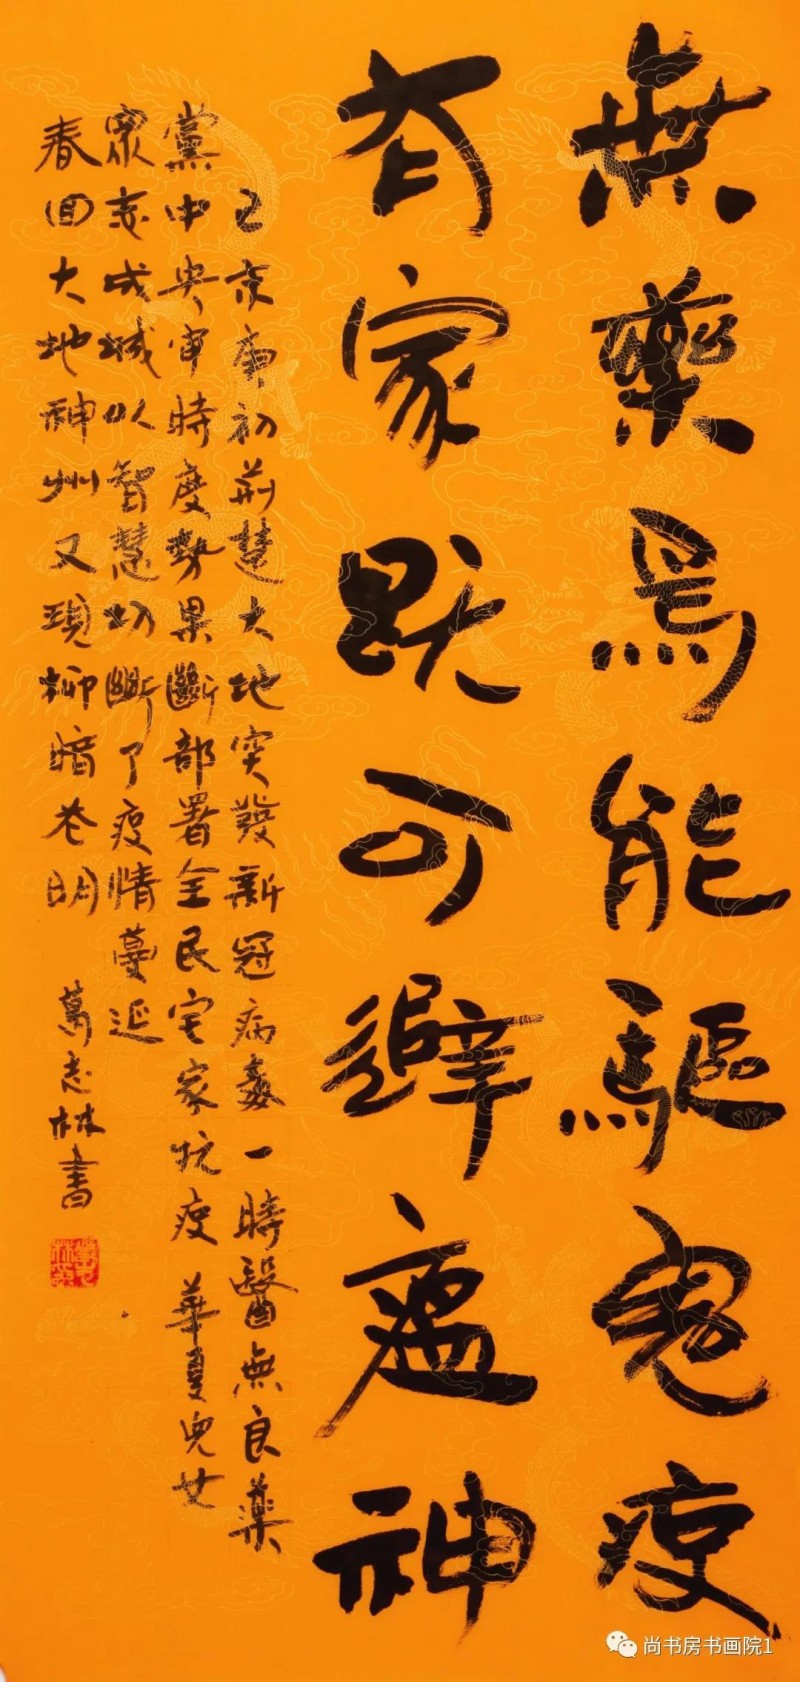 無藥焉能驅鬼疫
有家既可避瘟神
己亥庚初荆楚大地突發新冠病毒一時醫無良藥
黨中央审時度勢果斷部署全民宅家抗疫 華夏兒女
眾志成城以智慧切斷了疫情蔓延
春回大地神州又現柳暗花明 葛志林書
尚书房书画院1